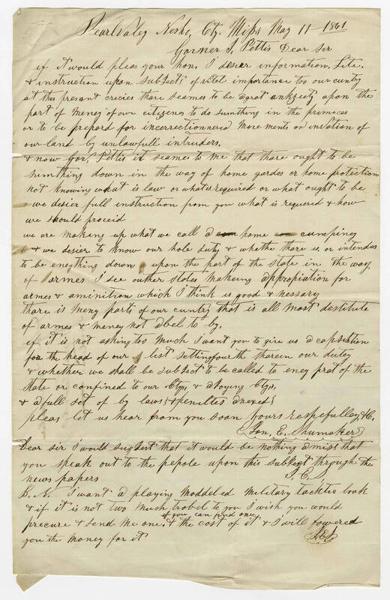 Pearl Valey Nesho, Cty, Miss May 11 - 1861
Govner J, Pettis Dear Sir
if it would pleas your hon, I desier information, Lite,
& instruction upon Subjects of vitel importence to our cuntry
at this present crecies there seames to be a grat anksiety upon the
part of meney of our citizens to do sumthing in the premeses
or to be prepard for incorrectionnera movements or invetion of
our land by unlawfull intruders.
& now Gov, Pettis it seames to me that there ought to be
sumthing down in the way of home gardes or home protection
not knowing what is law or whats required or what ought to be
we desier full instruction from you what is required & how
we should proceid
we are making up what we call a home company
& we desier to know our hole duty & whethe there is or intended
to be enything down upon the part of the state in the way
of armes I see outher states makeing appropiation for
armes & aminition which I think is good & nessary
thare is meny parts of our cuntry that is all most destitute
of armes & meney not abel to by,
if it is not asking too much I want you to give us a caposition
for the head of our list settingfourth therein our duty
& whether we shall be subject to be called to eney prat of the
State or confined to our Cty, & adjoying Ctys,
& a full set of by laws (& penelties anexed)
pleas let us hear from you soon yours Respefulley &c,
Jon, E, Shumaker
Dear sir I would sugjest that it would be nothing amis that
you speak out to the pepole upon this subject through the
news papers J. E. S
N. B. I want a playing moddeled military tackties book
& if it is not two much trobel to you I wish you would
if you can find one,
precure & send me one, & the cost of it & I will foward
you the money for it
J E S